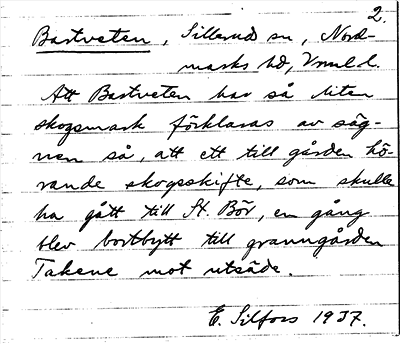 2.
Bastveten, Sillerud sn, Nord-
marks hd, Vrml l.
Att Bastveten har så liten
skogsmark förklaras av säg-
nen så, att ett till gården hö-
rande skogsskifte, som skulle
ha gått till St. Bör, en gång
blev bortbytt till granngården
Takene mot utsäde.
E. Silfors 1937.